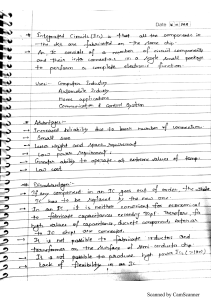 Date
→ Integrated Circuits (ICs) is that all the components in
the are fabricated on the same chip.
→ An IC consists of a number of circuit components
and their inter connection in a single small package
to perform a complete electronic function.
Uses: Computer Industry
Automobile Industry
Home appliances
Communication & control system
→ Advantages:-
→ Increased reliability due to number of connection
→ Small size
→ Less weight and space requirement
→ Low power requirement
→ Greater ability to operate at extreme values of temp.
→ Low cost
→ Disadvantages:-
→ If any component in an IC goes out of order, the whole
IC has to be replaced by the new one
→ In an IC, it is neither convenient nor economical
to fabricate capacitances exceeding 30pF. Therefore, for
high values of capacitance discrete components exterior
to IC chip are
→ It is not possible to fabricate inductors and
transformers on the surface of semi conductor chip.
→ It is not possible to produce high power ICs (>10W)
→ Lack of flexibility in an IC
Scanned by CamScanner